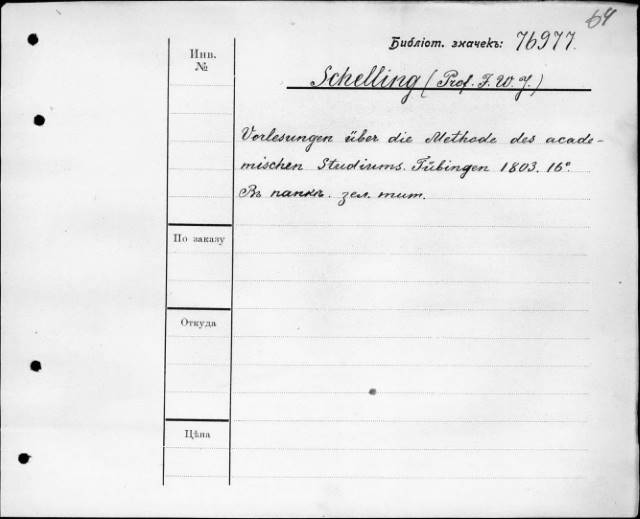 64
Библіот. значекъ: 76977.
Инв.
№
Schelling (Prof. F. W. J.)
Vorlesungen über die Methode des acade-
mischen Studiums. Tübingen 1803. 16°.
Въ папкѣ. зел. тит.
По заказу
Откуда
Цѣна